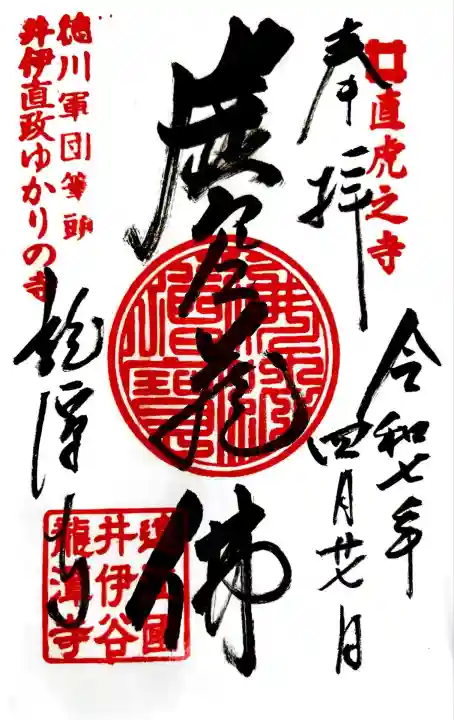 直虎之寺
奉拝
令和七年
四月廿七日
虚空蔵佛
佛法僧寶
徳川軍団筆頭
井伊直政ゆかりの寺
龍潭寺
遠江國
井伊谷
龍潭寺